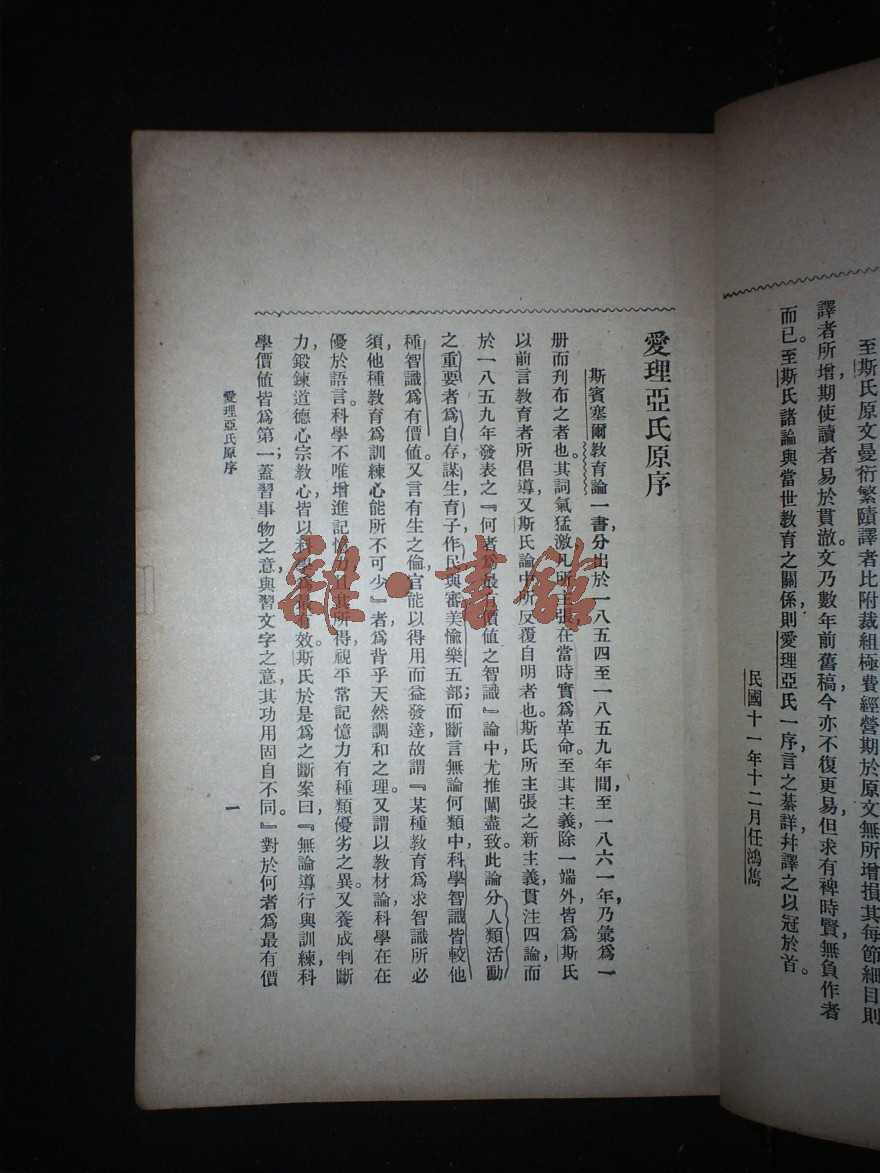 至斯氏原文曼衍繁賾譯者比附裁組極費經營期於原文無所增損其每節細目則
譯者所增期使讀者易於貫澈文乃數年前舊稿今亦不復更易但求有裨時賢無負作者
而已。至斯氏諸論與當世教育之關係則愛理亞氏一序言之綦詳幷譯之以冠於首。
民國十一年十二月任鴻雋
愛理亞氏原序
斯賓塞爾教育論一書,分出於一八五四至一八五九年間,至一八六一年,乃彙爲一
册而刋布之者也。其詞氣猛激,凡所主張,在當時實爲革命。至其主義,除一端外,皆爲斯氏
以前言教育者所倡導,又斯氏論中所反覆自明者也。斯氏所主張之新主義,貫注四論,而
於一八五九年發表之『何者爲最有價値之智識』論中,尤推闡盡致。此論分人類活動
之重要者爲自存,謀生,育子,作民,與審美愉樂五部;而斷言無論何類中,科學智識皆較他
種智識爲有價値。又言有生之倫,官能以得用而益發達,故謂『某種教育爲求智識所必
須,他種教育爲訓練心能所不可少』者,爲背乎天然調和之理。又謂以教材論,科學在在
優於語言。科學不唯增進記憶力,且其所得,視平常記憶力有種類優劣之異。又養成判斷
力,鍛鍊道德心,宗教心,皆以科學爲最有效。斯氏於是爲之斷案曰,『無論導行與訓練,科
學價値皆爲第一;蓋習事物之意,與習文字之意,其功用固自不同。』對於何者爲最有價
愛理亞氏原序
一
雜·書館